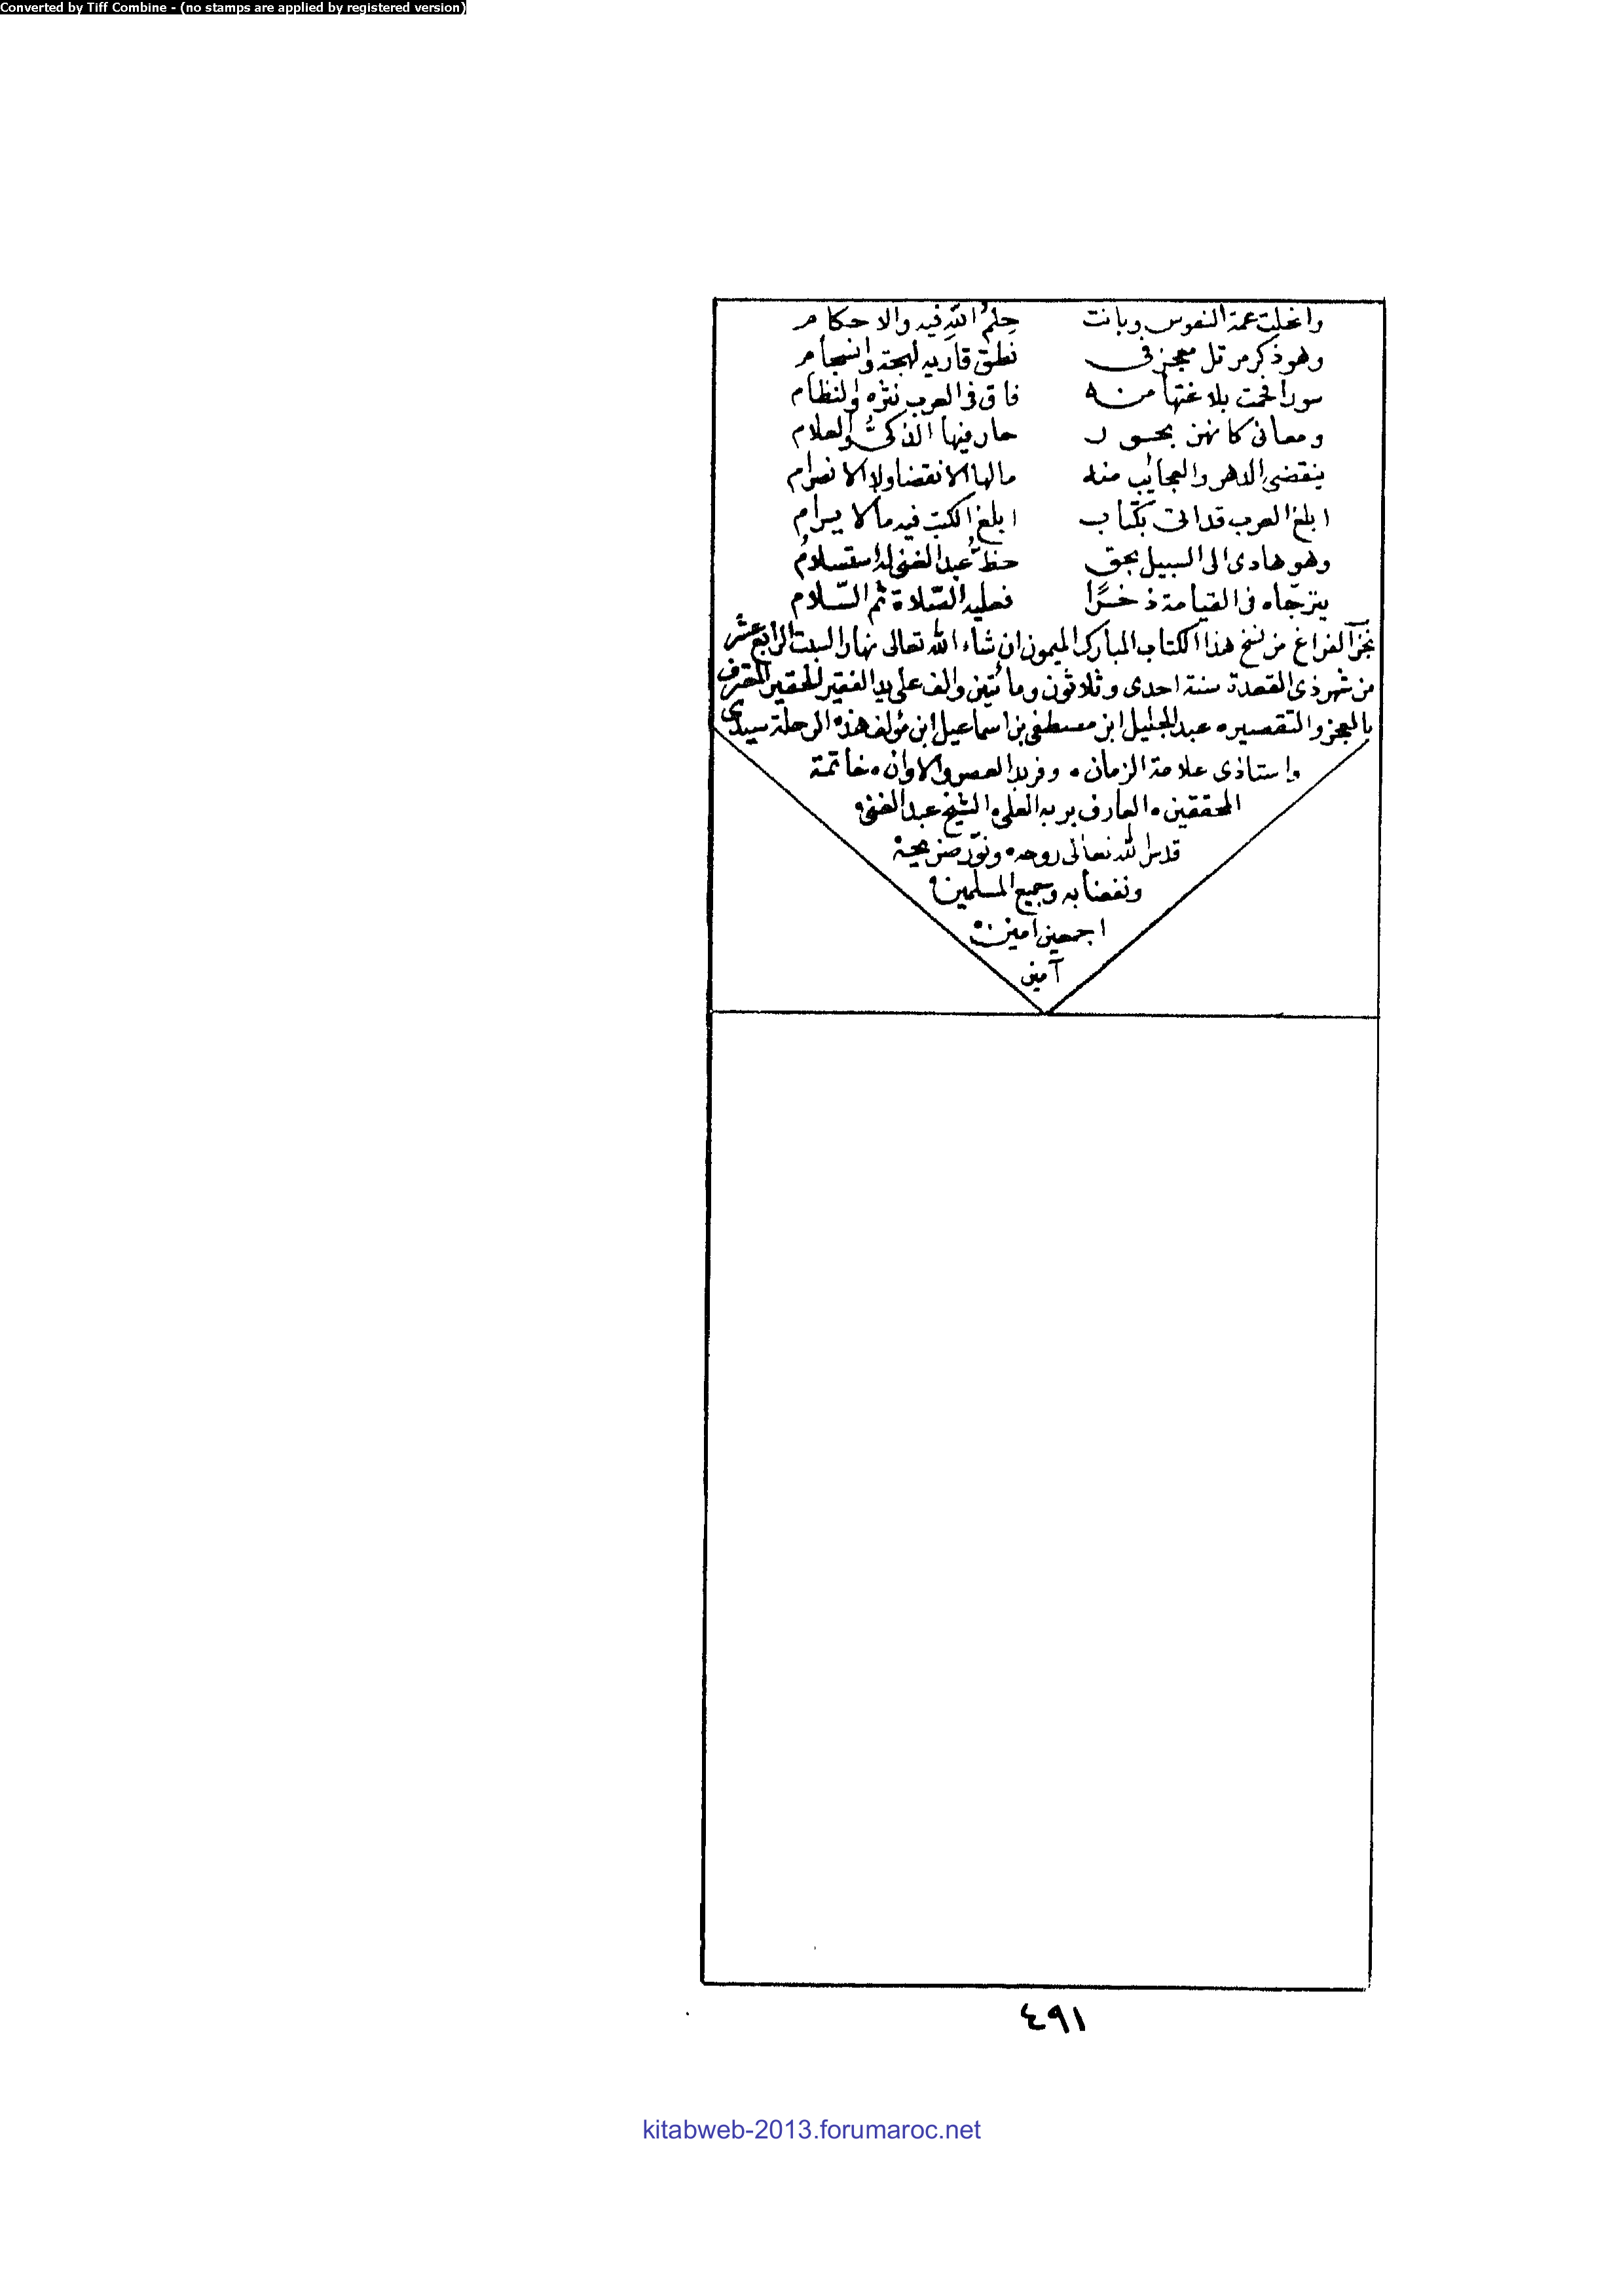 Converted by Tiff Combine - (no stamps are applied by registered version)
وانجلت غمة النفوس وبانت حِلمُ اللّهِ فيه والاحكام
وهو ذكر مرتل معجز في نطق قاريه لهجة وانسجام
سور افحمت بلاغتها منه فاق في العرب نثره والنظام
ومعاني كانهن بحور حار فيها الذكيُّ والعلام
ينقضي الدهر والعجايب منه مالها الانقضا ولا الانصرام
ابلغ العرب قد اتى بكتاب ابلغ الكتب فيه ما لا يرام
وهو هادى الى السبيل بحق حظ عبد الغنى له استسلامُ
يترجّاه فى القيامة ذخرًا فعليه الصّلاة ثم السّلام
نجز الفراغ من نسخ هذا الكتاب المبارك الميمون ان شاء الله تعالى نهار السبت الرابع عشر
من شهر ذى القعدة سنة احدى وثلاثون ومائتين والف على يد الفقير الحقير المعترف
بالعجز والتقصير، عبد الجليل ابن مصطفى بن اسماعيل ابن مؤلف هذه الرحلة سيدى
واستاذى علامة الزمان، وفريد العصر والاوان، خاتمة
المحققين، العارف بربه العلى، الشيخ عبد الغنى
قدس الله تعالى روحه، ونوّر ضريحه
ونفعنا به وجميع المسلمين
اجمعين امين
آمين
٤٩١
kitabweb-2013.forumaroc.net